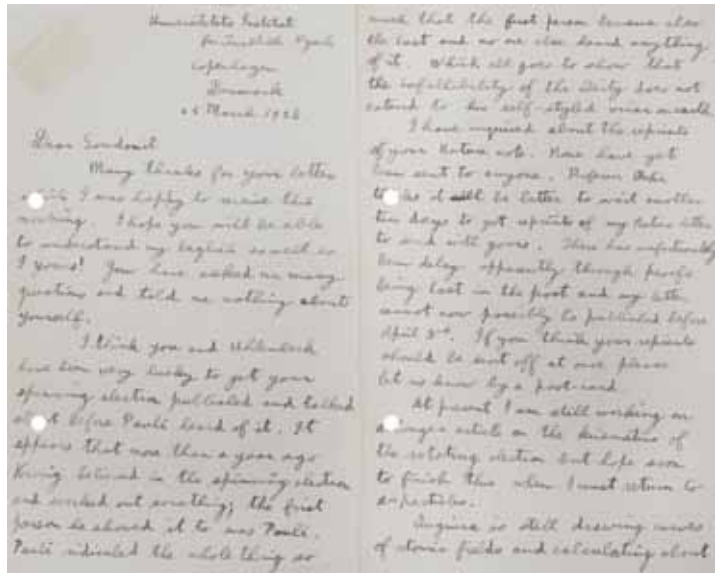 Universitetets Institut
for Teoretisk Fysik
Copenhagen
Denmark
25 March 1926
Dear Goudsmit
Many thanks for your letter
which I was happy to receive this
morning. I hope you will be able
to understand my English as well as
I yours! You have asked me many
questions and told me nothing about
yourself.
I think you and Uhlenbeck
have been very lucky to get your
spinning electron published and talked
about before Pauli heard of it. It
appears that more than a year ago
Kronig believed in the spinning electron
and worked out something; the first
person he showed it to was Pauli.
Pauli ridiculed the whole thing so
much that the first person became also
the last and no one else heard anything
of it. Which all goes to show that
the infallibility of the Deity does not
extend to his self-styled vicar on earth.
I have inquired about the reprints
of your Nature note. None have yet
been sent to anyone. Professor Bohr
thinks it will be better to wait another
ten days to get reprints of my Nature letter
to send with yours. There has unfortunately
been delay apparently through proofs
being lost in the post and my letter
cannot now possibly be published before
April 3rd. If you think your reprints
should be sent off at once please
let us know by a post-card.
At present I am still working on
a longer article on the kinematics of
the rotating electron but hope soon
to finish this when I must return to
α-particles.
is still drawing curves
of atomic fields and calculating about